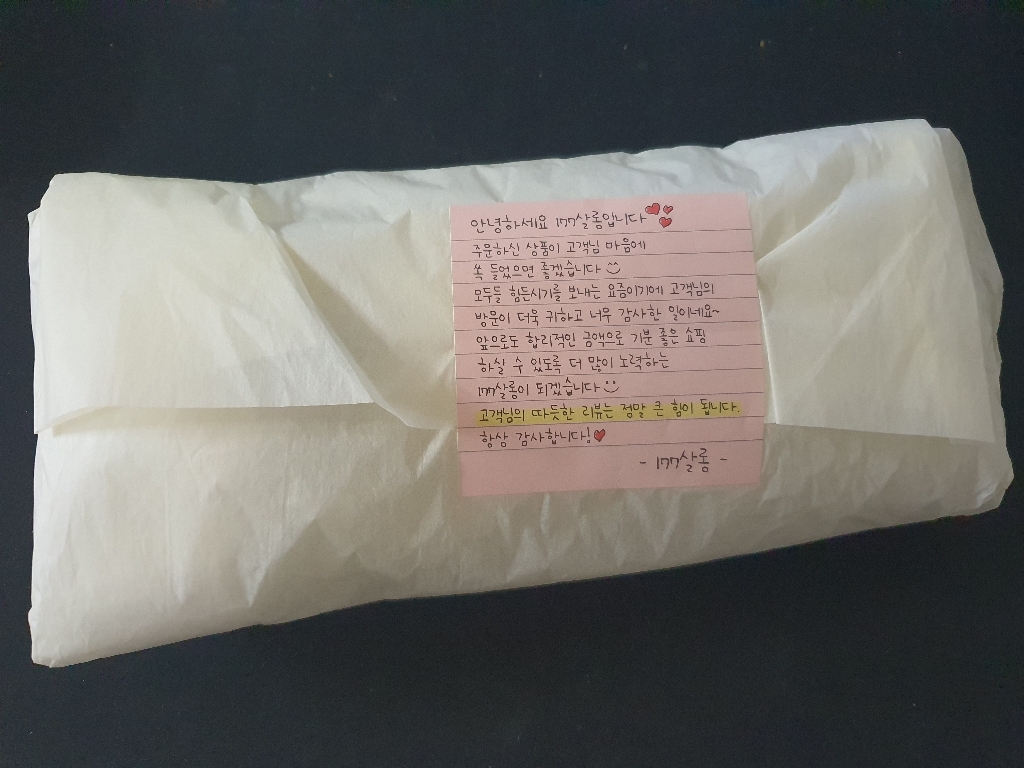 안녕하세요 177살롱입니다
주문하신 상품이 고객님 마음에
쏙 들었으면 좋겠습니다
모두들 힘든시기를 보내는 요즘이기에 고객님의
방문이 더욱 귀하고 너무 감사한 일이네요~
앞으로도 합리적인 금액으로 기분 좋은 쇼핑
하실 수 있도록 더 많이 노력하는
177살롱이 되겠습니다
고객님의 따듯한 리뷰는 정말 큰 힘이 됩니다.
항상 감사합니다!
- 177살롱 -